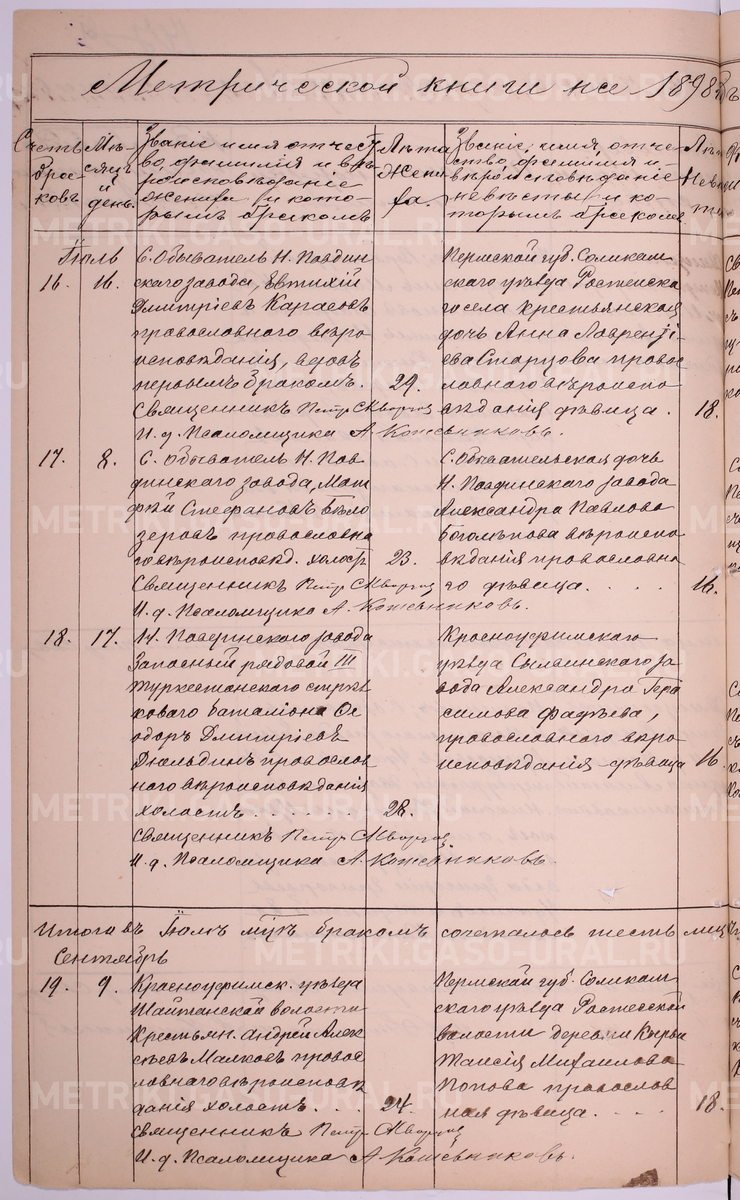 Метрической книги на 1898 г
Счетъ браковъ
Мѣсяцъ и день
Званіе имя отчество, фамилія и вѣроисповѣданіе жениха и которымъ бракомъ
Лѣта жениха.
Званіе, имя, отчество, фамилія и вѣроисповѣданіе невѣсты и которымъ бракомъ
Лѣта Невѣсты
Іюль
16. 16.
С. Обыватель Н. Павдин
скаго завода, Евтихій
Дмитріевъ Караевъ
православнаго вѣро
исповѣданія, вдовъ
первымъ бракомъ. 29.
Священникъ Петръ
И. д. Псаломщика А. Кожевниковъ.
Пермской губ. Соликам
скаго уѣзда Ростесска
го села крестьянская
дочь Анна Лаврентi
ева Старцова правос
лавнаго вѣроиспо
вѣданія дѣвица. 18.
17. 8.
С. Обыватель Н. Пав
динскаго завода, Мат
ѳѣй Стефановъ Бѣло
зеровъ православна
го вѣроисповѣд. холостъ 23.
Священникъ Петръ
И. д. Псаломщика А. Кожевниковъ.
С. Обывательская дочь
Н. Павдинскаго завода
Александра Павлова
Боголѣпова вѣроиспо
вѣданія православна
го дѣвица. . . . . 16.
18. 17.
Н. Павдинскаго завода
Запасный рядовой III
Туркестанскаго стрѣл
коваго баталіона Ѳе
одоръ Дмитріевъ
Дюльдинъ правослов
наго вѣроисповѣданія
холостъ . . . . . . . 28.
Священникъ Петръ
И. д. Псаломщика А. Кожевниковъ.
Красноуфимскаго
уѣзда Сылвинскаго за
вода Александра Гера
симова Фадѣева,
православнаго вѣро
исповѣданія дѣвица 16.
Итого въ Іюлѣ муж. бракомъ сочеталось шесть лиц
Сентябрь
19. 9.
Красноуфимск. уѣзда
Шайтанской волости
крестьян. Андрей Алек
сѣевъ Малковъ правос
лавнаго вѣроисповѣ
данія холостъ. . . . 24.
Священникъ Петръ
И. д. Псаломщика А. Кожевниковъ.
Пермской губ. Соликам
скаго уѣзда Ростесской
волости деревни Кырьи
Таисія Михаилова
Попова православ
ная дѣвица. . . . . 18.
METRIKI.GASO-URAL.RU